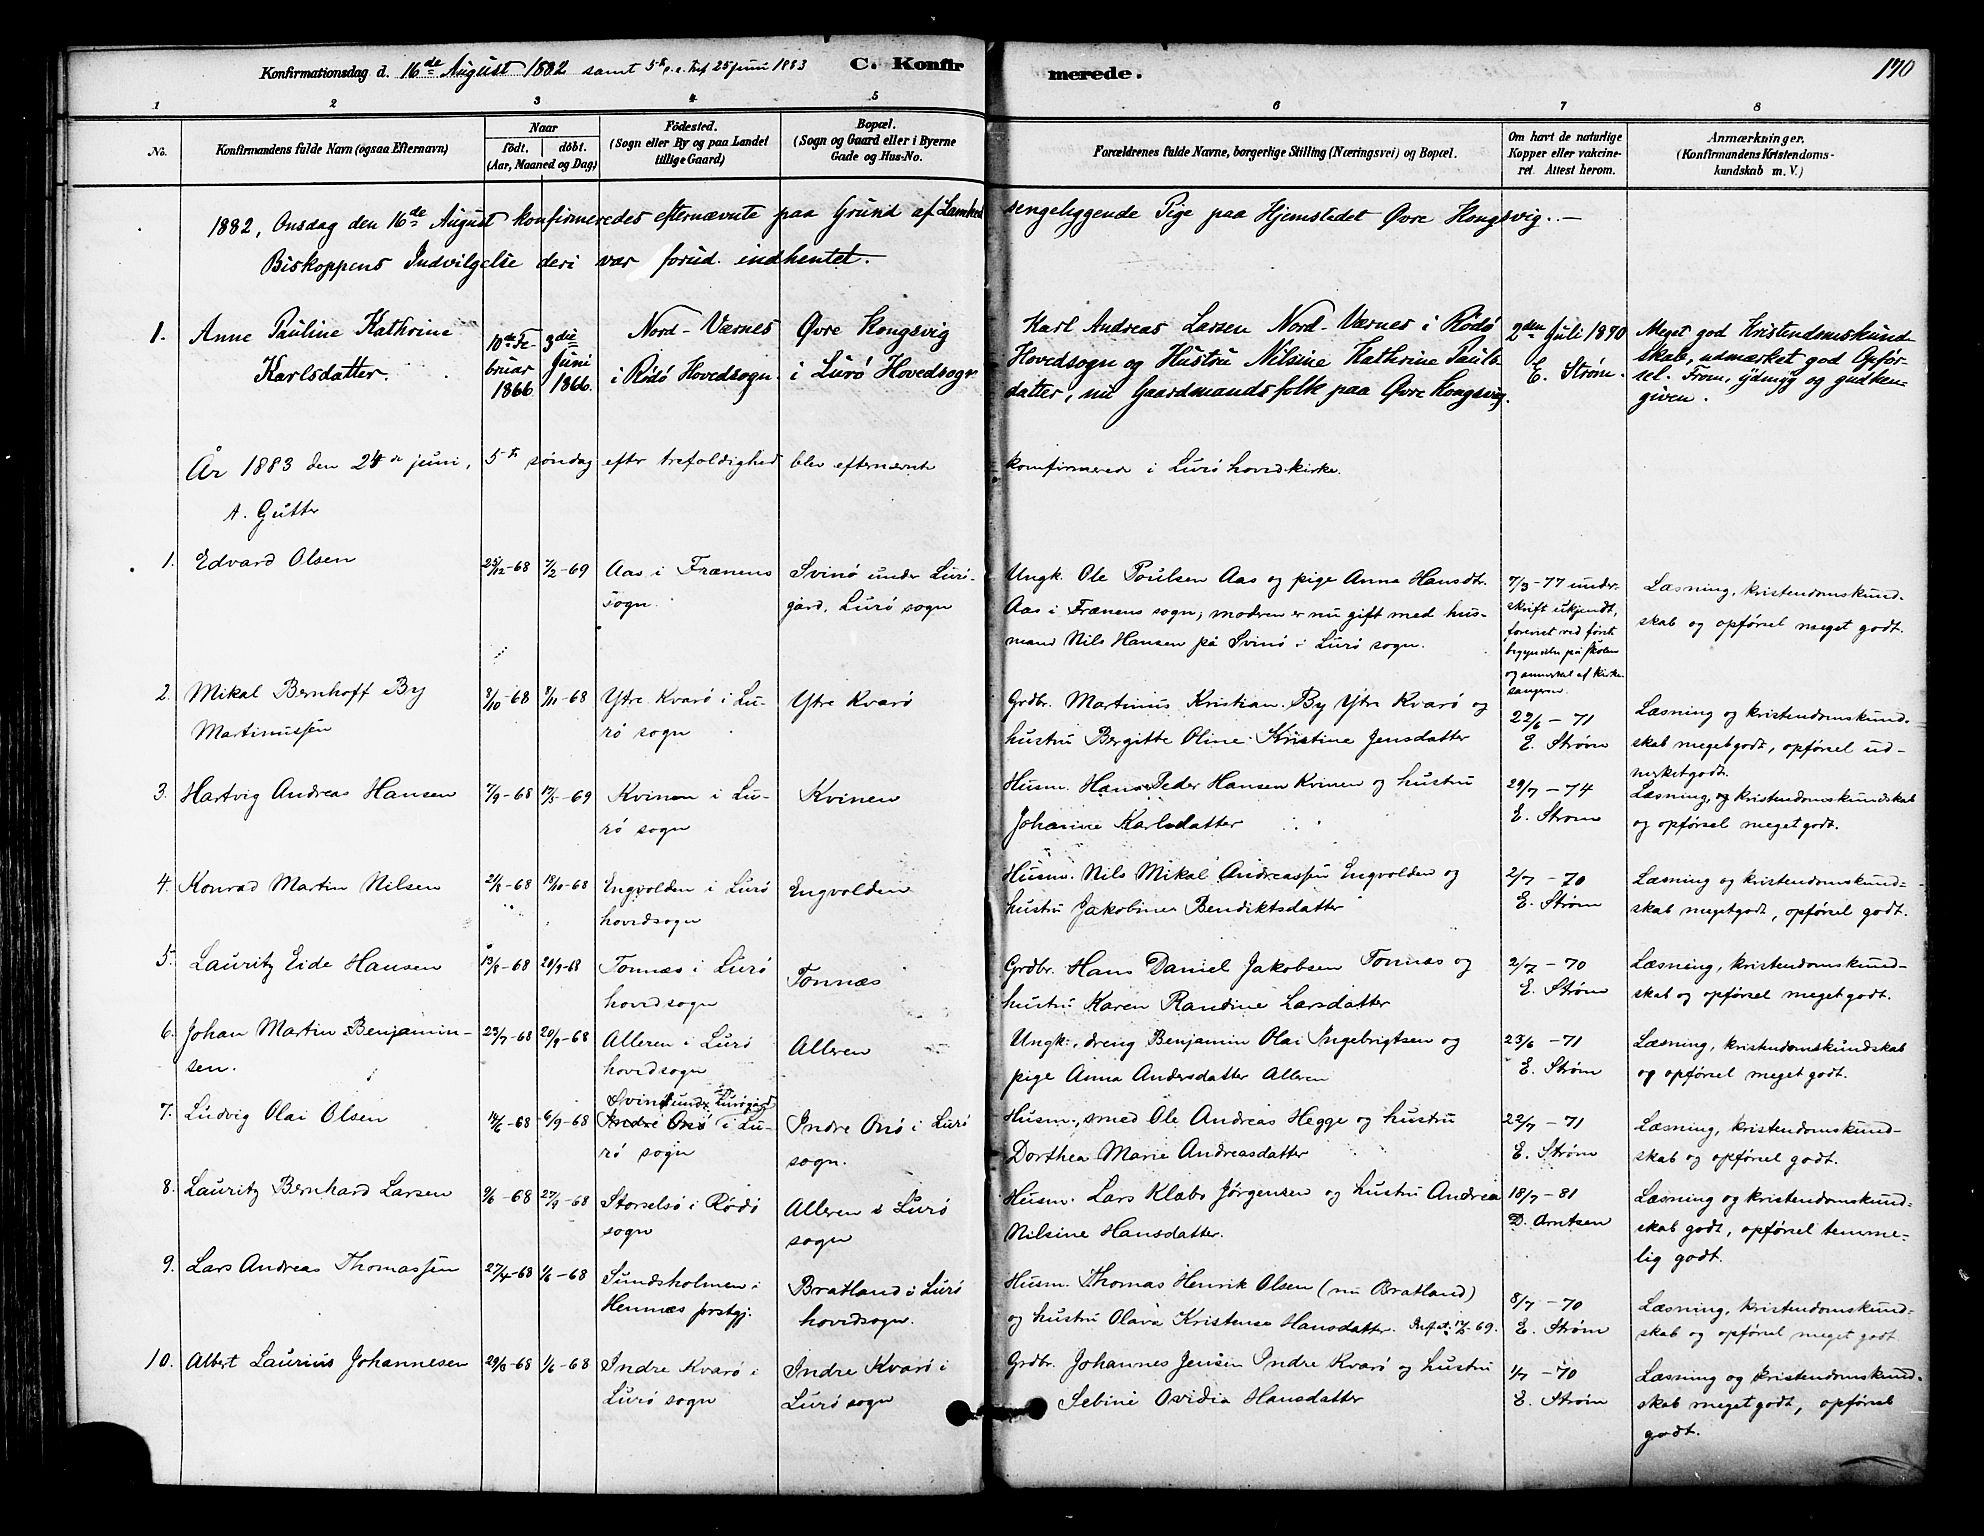 Konfirmationsdag d. 16de August 1882 samt 5te e. tref 25 juni 1883 C. Konfirmerede. 190
1 2 3 4 5 6 7 8
No. Konfirmandens fulde Navn (ogsaa Efternavn) Naar født. døbt. (Aar, Maaned og Dag) Fødested. (Sogn eller By og paa Landet tillige Gaard) Bopæl. (Sogn og Gaard eller i Byerne Gade og Hus-No. Forældrenes fulde Navne, borgerlige Stilling (Næringsvei) og Bopæl. Om havt de naturlige Kopper eller vakcineret. Attest herom. Anmærkninger. (Konfirmandens Kristendomskundskab m. V.)
1882, Onsdag den 16de August konfirmeredes efternævnte paa Grund af Lamhed sengeliggende Pige paa Hjemstedet Øvre Kongsvig. —
Biskoppens Indvilgelse deri var forud indhentet.
1. Anne Pauline Kathrine Karlsdatter. 10de Februar 1866 3die Juni 1866. Nord-Værnes i Rødø Hovedsogn. Øvre Kongsvig i Lurø Hovedsogn.
Karl Andreas Larsen Nord-Værnes i Rødø Hovedsogn og Hustru Nilsine Kathrine Paulsdatter, nu Gaardmandsfolk paa Øvre Kongsvig. 2den Juli 1870 E. Strøm. Meget god Kristendomskundskab, udmærket god Opførsel. From, ydmyg og gudhengiven.
År 1883 den 24de juni, 5te søndag efter trefoldighed blev efternævnte konfirmerede i Lurö hovedkirke.
A. Gutter
1. Edvard Olsen 25/12-68 7/2-69 Aas i Frænens sogn. Svinö under Lurögård, Lurö sogn
Ungk. Ole Poulsen Aas og pige Anna Hansdt. Aas i Frænens sogn; moderen er nu gift med husmand Nils Hansen på Svinö i Lurö sogn. 7/3-77 underskrift ukjendt, forevist ved første begyndelse på skolen og anmerket af kirkesangeren. Læsning, kristendomskundskab og opførsel meget godt.
2. Mikal Bernhoff By Martinussen 8/10-68 8/11-68 Ytre Kvarö i Lurö sogn Ytre Kvarö
Grdbr. Martinius Kristian By Ytre Kvarö og hustru Bergitte Oline Kristine Jensdatter 22/6-71 E. Strøm Læsning og kristendomskundskab meget godt, opførsel udmerket godt.
3. Hartvig Andreas Hansen 7/9-68 17/5-69 Kvinen i Lurö sogn Kvinen
Husm. Hans Peder Hansen Kvinen og hustru Johanne Karlsdatter 29/7-74 E. Strøm Læsning, og kristendomskundskab og opførsel meget godt.
4. Konrad Martin Nilsen 21/8-68 18/10-68 Engvolden i Lurö hovedsogn Engvolden
Husm. Nils Mikal Andreassen Engvolden og hustru Jakobine Bendiktsdatter 2/7-70 E. Strøm Læsning og kristendomskundskab meget godt, opførsel godt.
5. Lauritz Eide Hansen 13/8-68 20/9-68 Tonnæs i Lurö hovedsogn Tonnæs
Grdbr. Hans Daniel Jakobsen Tonnæs og hustru Karen Randine Larsdatter 2/7-70 E. Strøm Læsning, kristendomskundskab og opførsel meget godt.
6. Johan Martin Benjaminsen. 23/7-68 20/9-68 Alleren i Lurö hovedsogn Alleren
Ungk., dreng Benjamin Olai Ingebrigtsen og pige Anna Andersdatter Alleren 23/6-71 E. Strøm Læsning, kristendomskundskab og opførsel meget godt.
7. Ludvig Olai Olsen 14/6-68 6/9-68 Svinö under Lurögård Indre Onö i Lurö sogn Indre Onö i Lurö sogn.
Husm., smed Ole Andreas Hegge og hustru Dorthea Marie Andreasdatter 22/7-71 E. Strøm Læsning, kristendomskundskab og opførsel godt.
8. Lauritz Bernhard Larsen 9/6-68 27/9-68 Storselsö i Rödö sogn Alleren i Lurö sogn
Husm. Lars Klabo Jørgensen og hustru Andrea Nilsine Hansdatter. 18/7-81 D. Arntsen Læsning og kristendomskundskab godt, opførsel temmelig godt.
9. Lars Andreas Thomassen 27/4-68 1/6-68 Sundsholmen i Hemnæs prstgj. Bratland i Lurö hovedsogn.
Husm. Thomas Henrik Olsen (nu Bratland) og hustru Olava Kristense Hansdatter. 8/7-70 E. Strøm Læsning, kristendomskundskab og opførsel meget godt
10. Albert Laurius Johannesen 29/3-68 1/6-68 Indre Kvarö i Lurö sogn Indre Kvarö i Lurö sogn
Grdbr. Johannes Jensen Indre Kvarö og hustru Sebine Ovidia Hansdatter 1/7-70 E. Strøm Læsning og kristendomskundskab meget godt, opførsel godt.